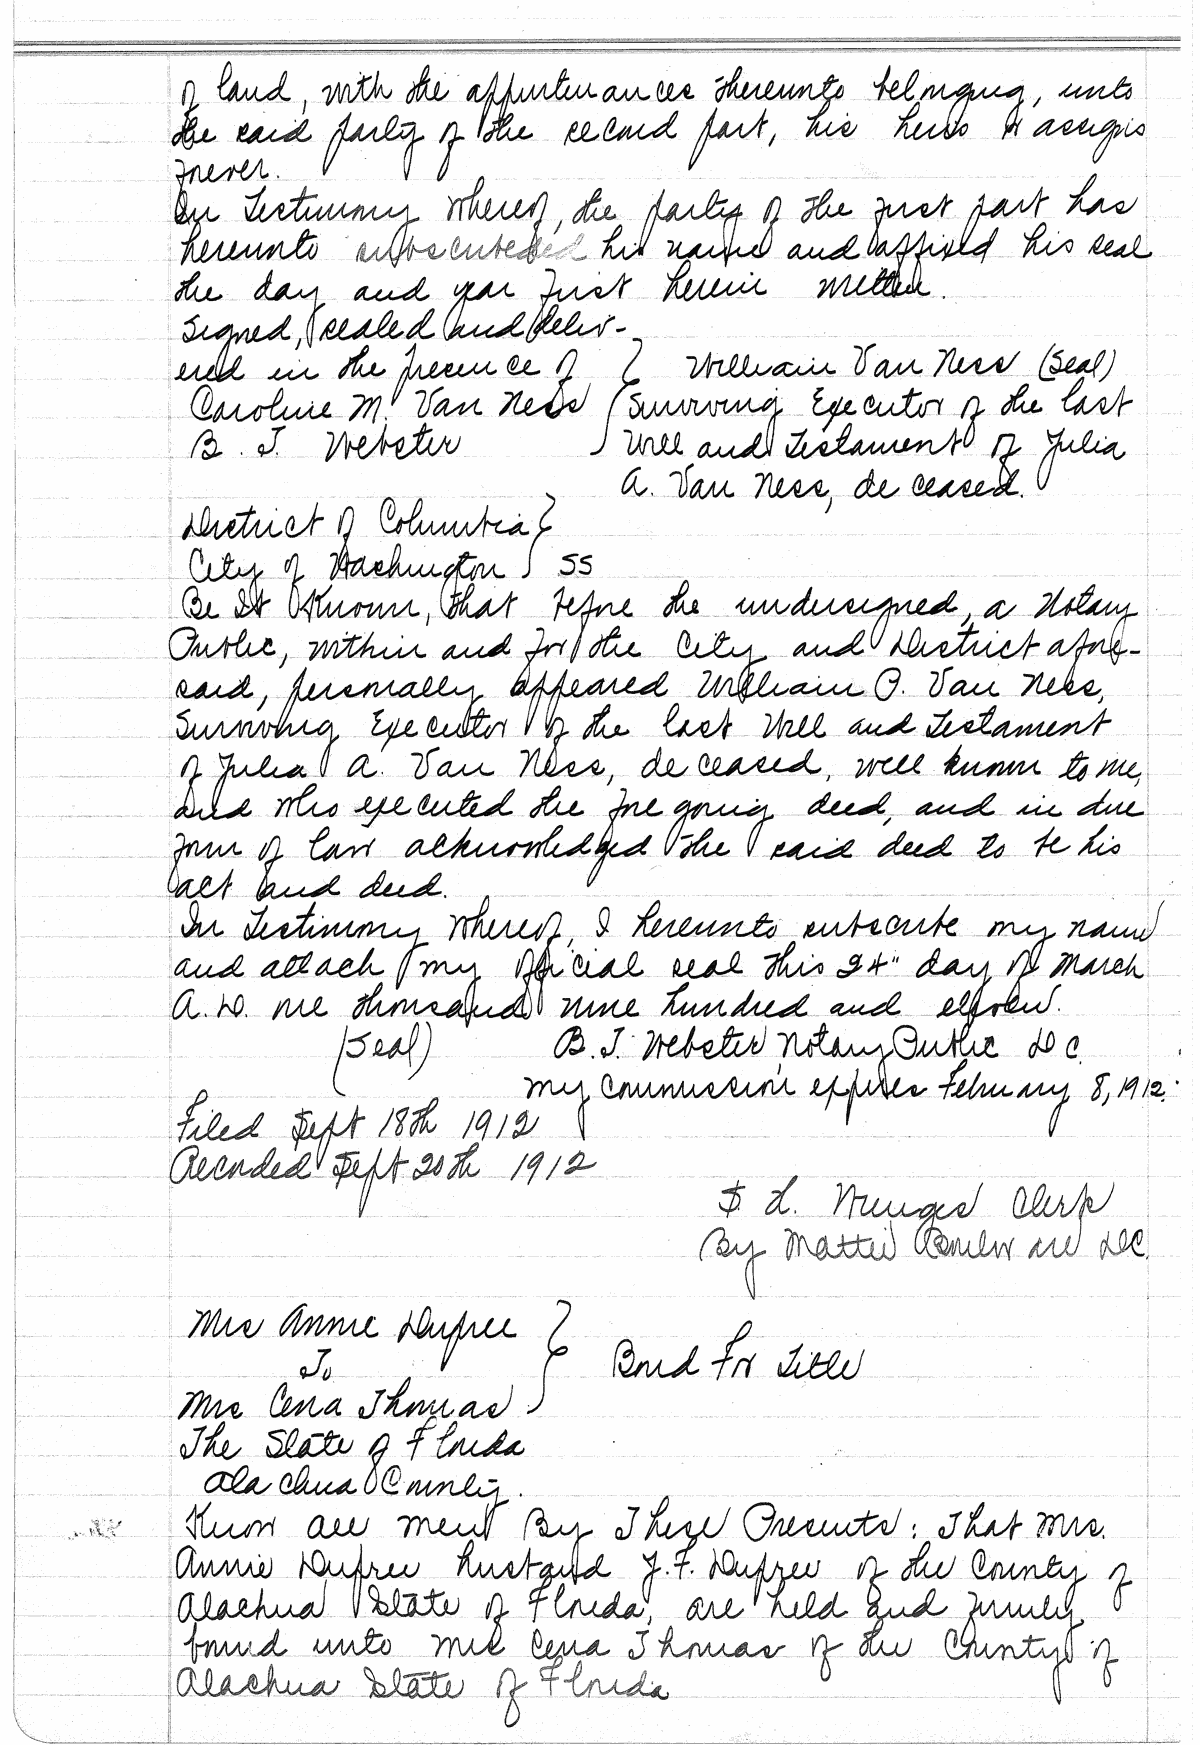 of land, with the appurtenances thereunto belonging, unto
the said party of the second part, his heirs & assigns
forever.
In Testimony Whereof, the party of the first part has
hereunto subscribed his name and affixed his seal
the day and year first herein written.
Signed, sealed and deliv-
ered in the presence of } William Van Ness (Seal)
Caroline M. Van Ness Surviving Executor of the last
B. J. Webster Will and Testament of Julia
A. Van Ness, deceased.
District of Columbia }
City of Washington ss
Be It Known, that before the undersigned, a Notary
Public, within and for the City and District afore-
said, personally appeared William P. Van Ness,
Surviving Executor of the last Will and Testament
of Julia A. Van Ness, deceased, well known to me,
and who executed the foregoing deed, and in due
form of law acknowledged the said deed to be his
act and deed.
In Testimony Whereof, I hereunto subscribe my name
and attach my official seal this 24" day of March
A.D. one thousand nine hundred and eleven.
(Seal) B. J. Webster, Notary Public D C
My commission expires February 8, 1912.
Filed Sept 18th 1912
Recorded Sept 20th 1912
S. H. Wienges Clerk
By Mattie D.C.
Mrs Annie Dupree }
To Bond For Title
Mrs Cena Thomas
The State of Florida
Alachua County.
Know all men By These Presents: That Mrs.
Annie Dupree husband J. F. Dupree of the County of
Alachua State of Florida, are held and firmly
bound unto Mrs Cena Thomas of the County of
Alachua State of Florida